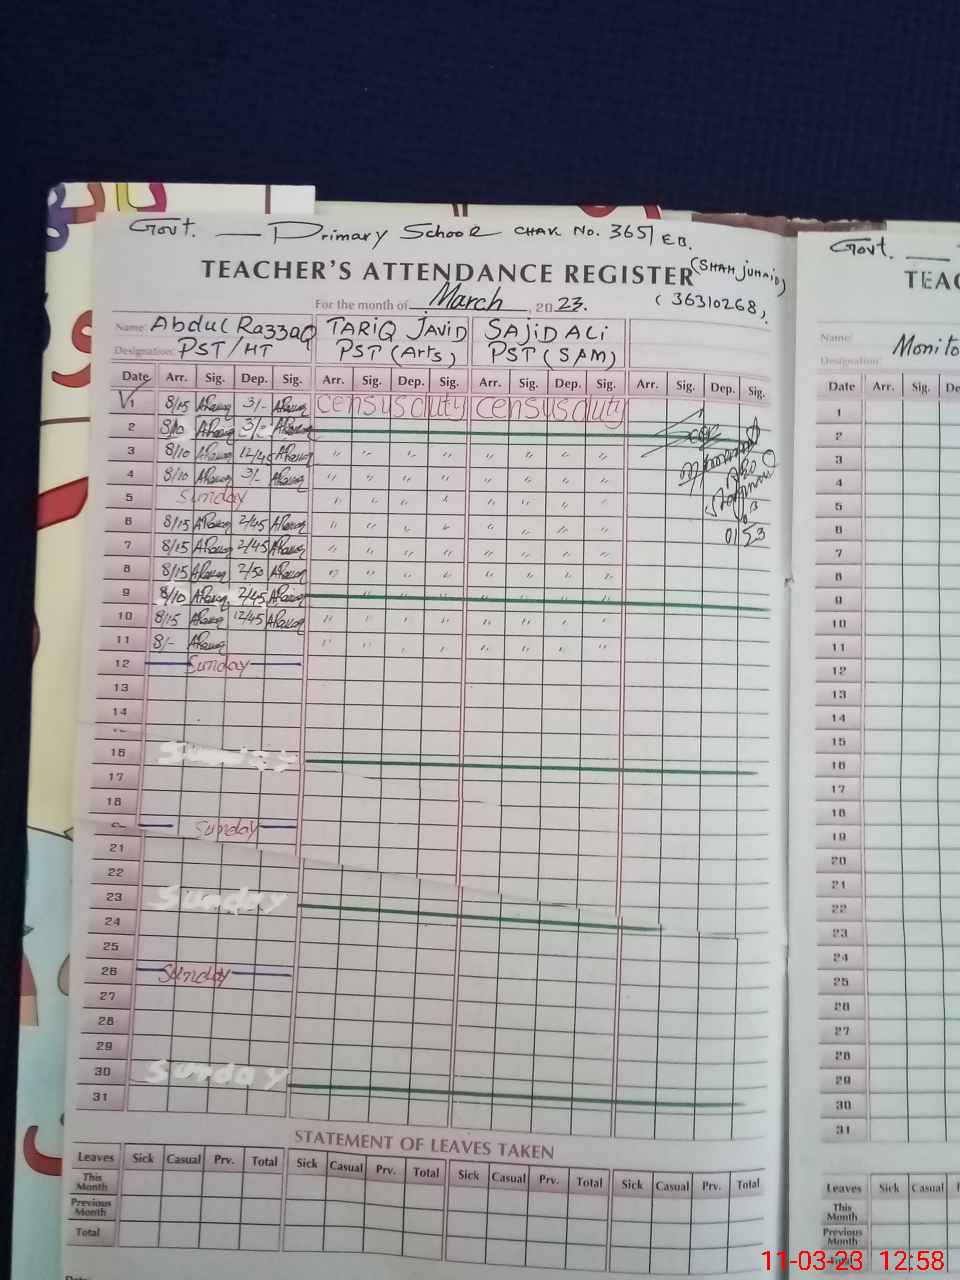 Govt. — Primary School CHAK No. 365/ E.B.
(SHAH JUNAID)
TEACHER'S ATTENDANCE REGISTER
(36310268)
For the month of March, 2023.
Name: Abdul Razzaq TARIQ JAVID SAJID ALI
Designation: PST/HT PST (Arts) PST (SAM)
Date Arr. Sig. Dep. Sig. Arr. Sig. Dep. Sig. Arr. Sig. Dep. Sig. Arr. Sig. Dep. Sig.
1 8/15 ARazzaq 3/- ARazzaq census duty census duty
2 8/10 ARazzaq 3/- ARazzaq
3 8/10 ARazzaq 12/45 ARazzaq " " " " " " " "
4 8/10 ARazzaq 3/- ARazzaq " " " " " " " "
5 Sunday " " " " " " " "
6 8/15 ARazzaq 2/45 ARazzaq " " " " " " " "
7 8/15 ARazzaq 2/45 ARazzaq " " " " " " " "
8 8/15 ARazzaq 2/50 ARazzaq " " " " " " " "
9 8/10 ARazzaq 2/45 ARazzaq
10 8/15 ARazzaq 12/45 ARazzaq " " " " " " " "
11 8/- ARazzaq " " " " " " " "
12 Sunday
13
14
16 Sunday
17
18
Sunday
21
22
23 Sunday
24
25
26 Sunday
27
28
29
30 Sunday
31
STATEMENT OF LEAVES TAKEN
Leaves Sick Casual Prv. Total Sick Casual Prv. Total Sick Casual Prv. Total Sick Casual Prv. Total
This Month
Previous Month
Total
Govt. —
TEAC
Name:
Designation: Monito
Date Arr. Sig. De
1
2
3
4
5
6
7
8
9
10
11
12
13
14
15
16
17
18
19
20
21
22
23
24
25
26
27
28
29
30
31
Leaves Sick Casual
This Month
Previous Month
Total
11-03-23 12:58